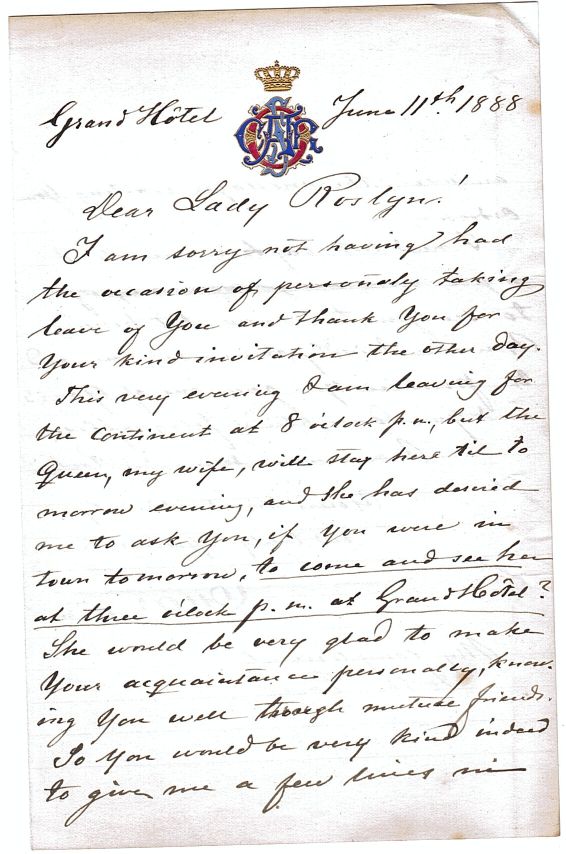 Grand Hôtel June 11th. 1888
Dear Lady Roslyn!
I am sorry not having had
the occasion of personaly taking
leave of You and thank You for
Your kind invitation the other day.
This very evening I am leaving for
the continent at 8 o'clock p.m., but the
Queen, my wife, will stay here til to
morrow evening, and she has desired
me to ask You, if You were in
town tomorrow, to come and see her
at three o'clock p.m. at Grand Hôtel?
She would be very glad to make
Your acquaintance personally, know-
ing You well through mutual friends.
So You would be very kind indeed
to give me a few lines in